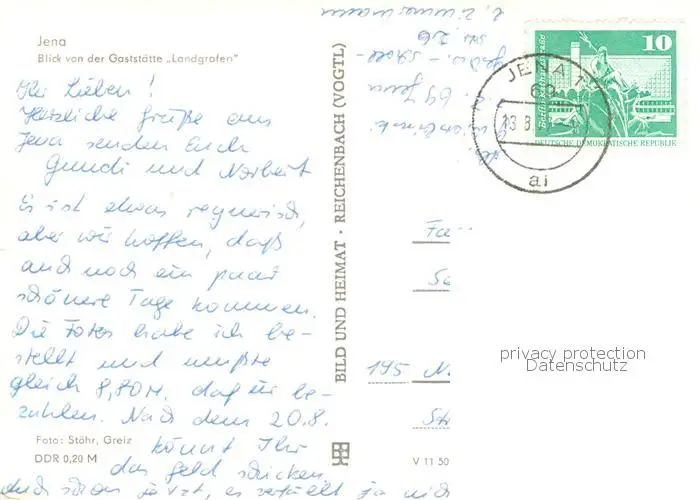 Jena
Blick von der Gaststätte „Landgrafen"
Ihr Lieben!
Herzliche Grüße aus
Jena senden Euch
Gundi und Norbert
Es ist etwas regnerisch,
aber wir hoffen, daß
auch noch ein paar
schönere Tage kommen.
Die Fotos habe ich be-
stellt und mußte
gleich 8,80M. dafür be-
zahlen. Nach dem 20.8.
könnt Ihr
das Geld schicken,
auch schon jetzt, es verfällt ja nicht
Foto: Stöhr, Greiz
DDR 0,20 M
BILD UND HEIMAT · REICHENBACH (VOGTL)
V 11 50
69 Jena
JENA 1
69
ai
10
DEUTSCHE DEMOKRATISCHE REPUBLIK
Fa
195
privacy protection
Datenschutz